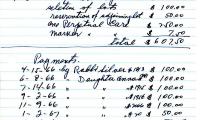 selection of lots $ 100.00
reservation of adjoining lot 50.00
one Perpetual Care $ 250.00
marker $ 7.50
total $ 607.50
Payments.
4-15-66 by Rabbi Silver # 183 $ 100.00
6-8-66 " Daughter $ 100.00
7-14-66 " " $ 100.00
8-9-66 " " $ 100.00
11-9-66 " " $ 100.00
1-2-67 " " $ 50.00